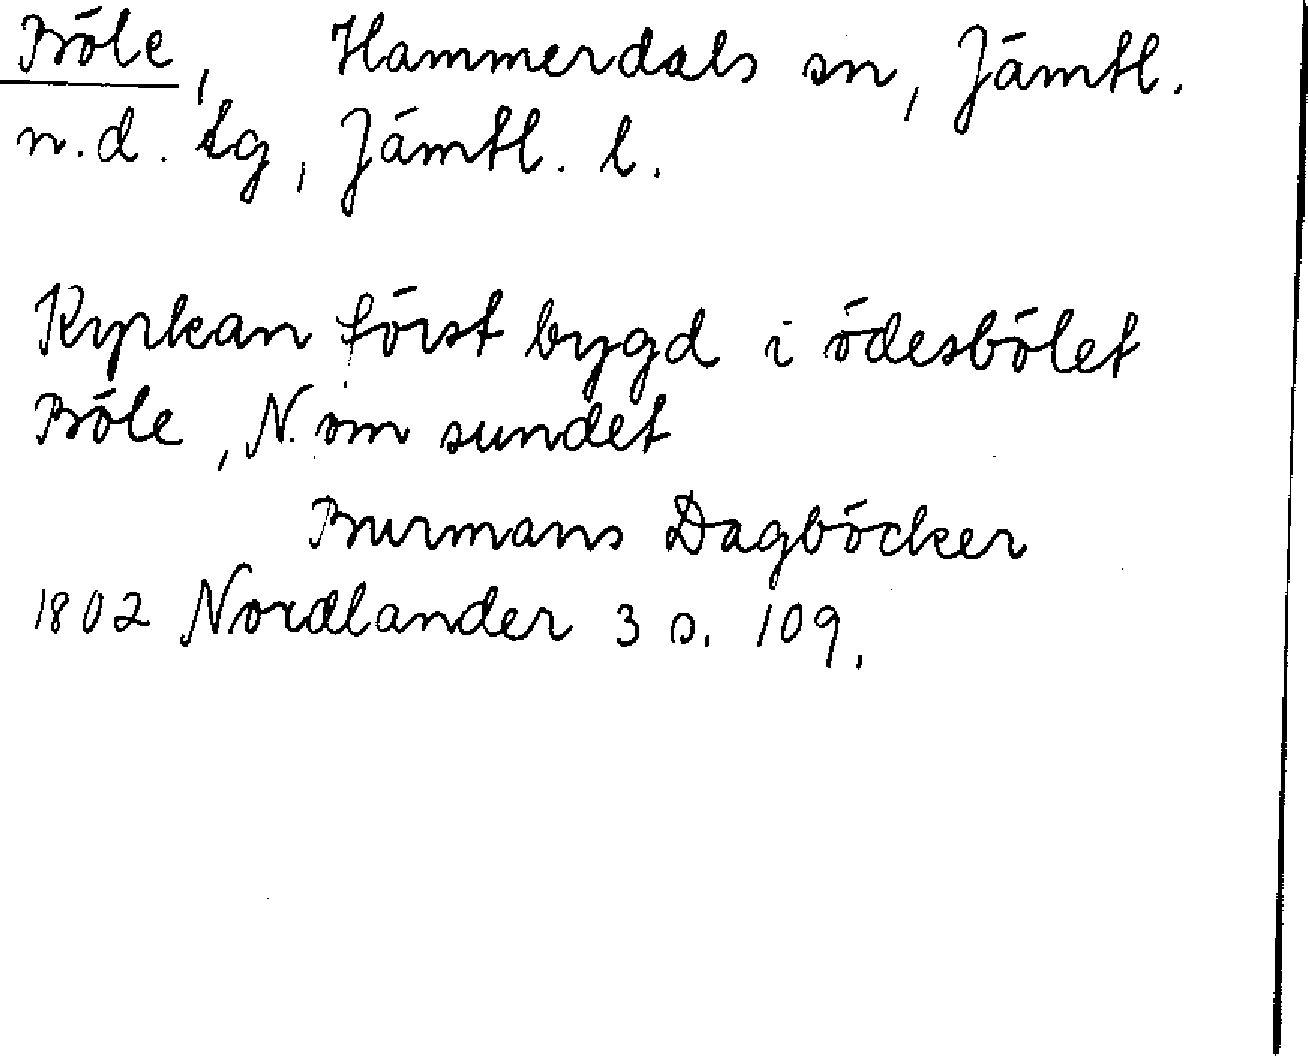 Böle, Hammerdals sn, Jämtl.
n.d. tg, Jämtl. l.
Kyrkan först bygd i ödesbölet
Böle, N. om sundet
Burmans Dagböcker
1802 Nordlander 3 s. 109.